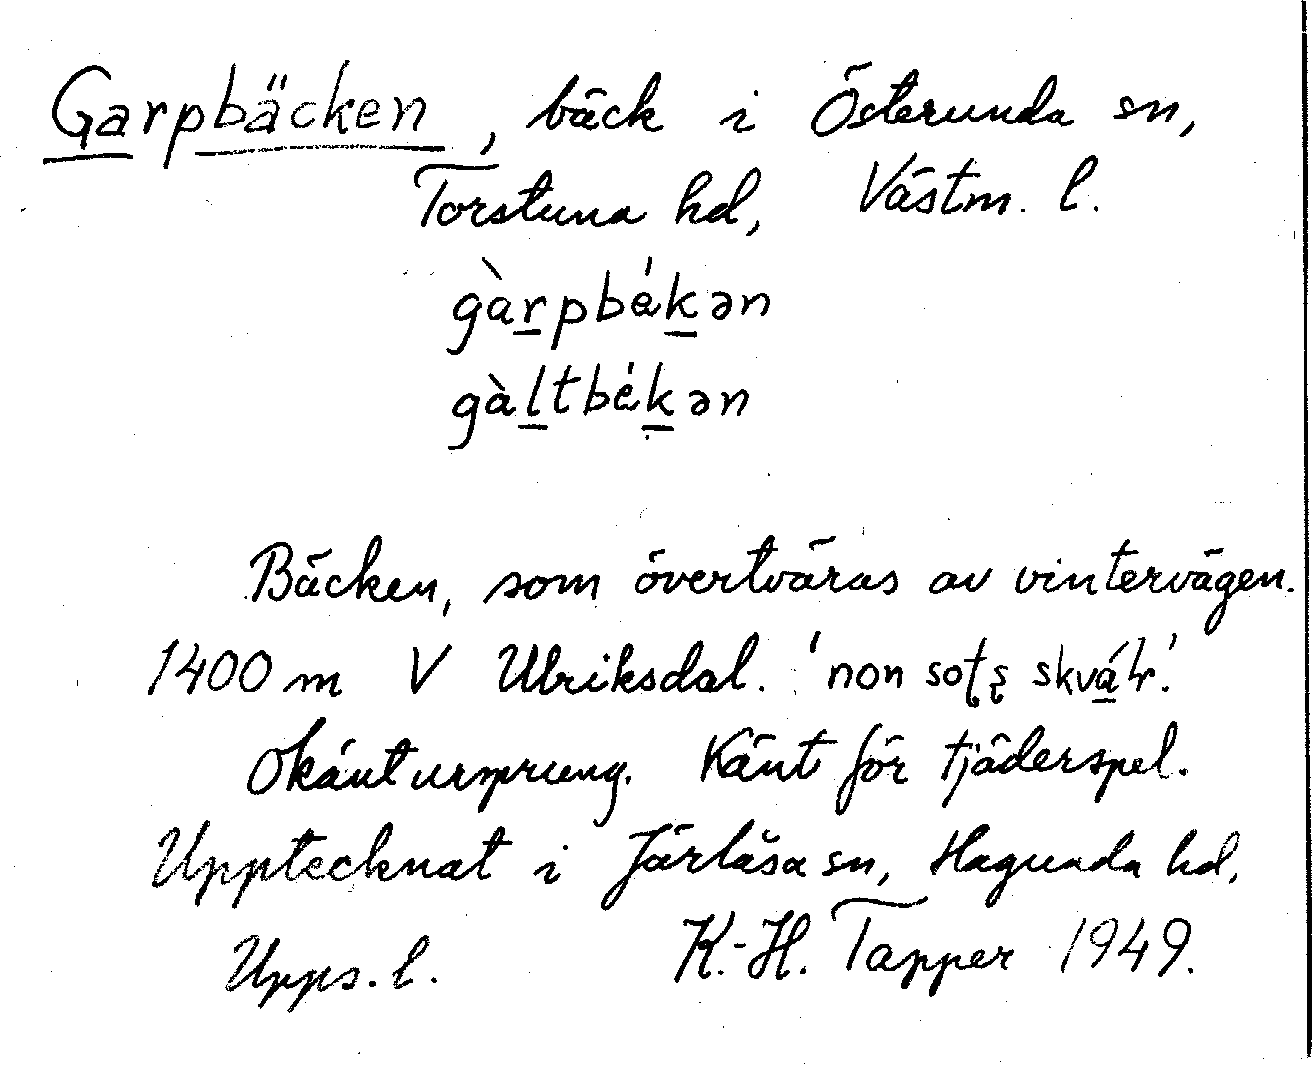 Garpbäcken, bäck i Österunda sn,
Torstuna hd, Västm. l.
gàrpbékən
gàltbékən
Bäcken, som övertväras av vintervägen.
1400 m V Ulriksdal. 'non soţş skválr.'
Okänt ursprung. Känt för tjäderspel.
Upptecknat i Järlåsa sn, Hagunda hd,
Upps. l. K.-H. Tapper 1949.